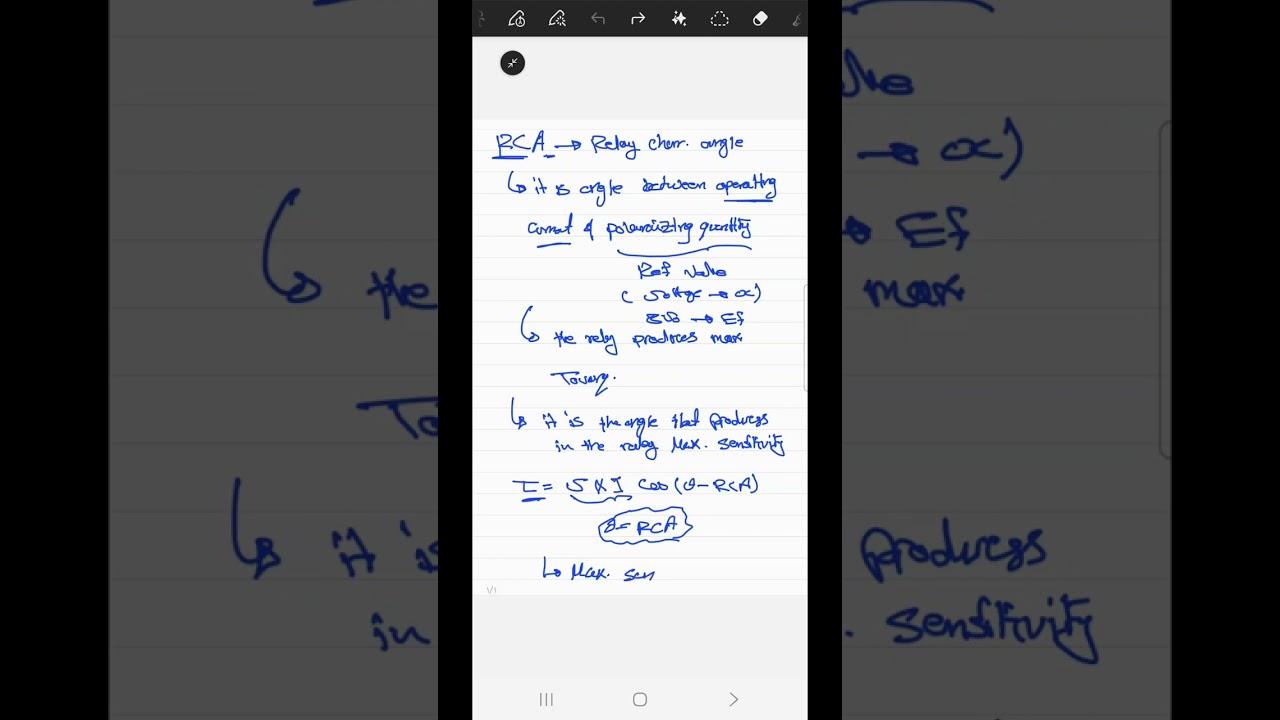 RCA → Relay charr. angle
↳ it is angle between operating
current & polarizing quantity
Ref value
( voltage → oc)
3V0 → Ef
↳ the relay produces max
Tourq.
↳ it is the angle that produces
in the relay Max. sensitivity
T = V x I Cos (θ - RCA)
θ = RCA
↳ Max. sen